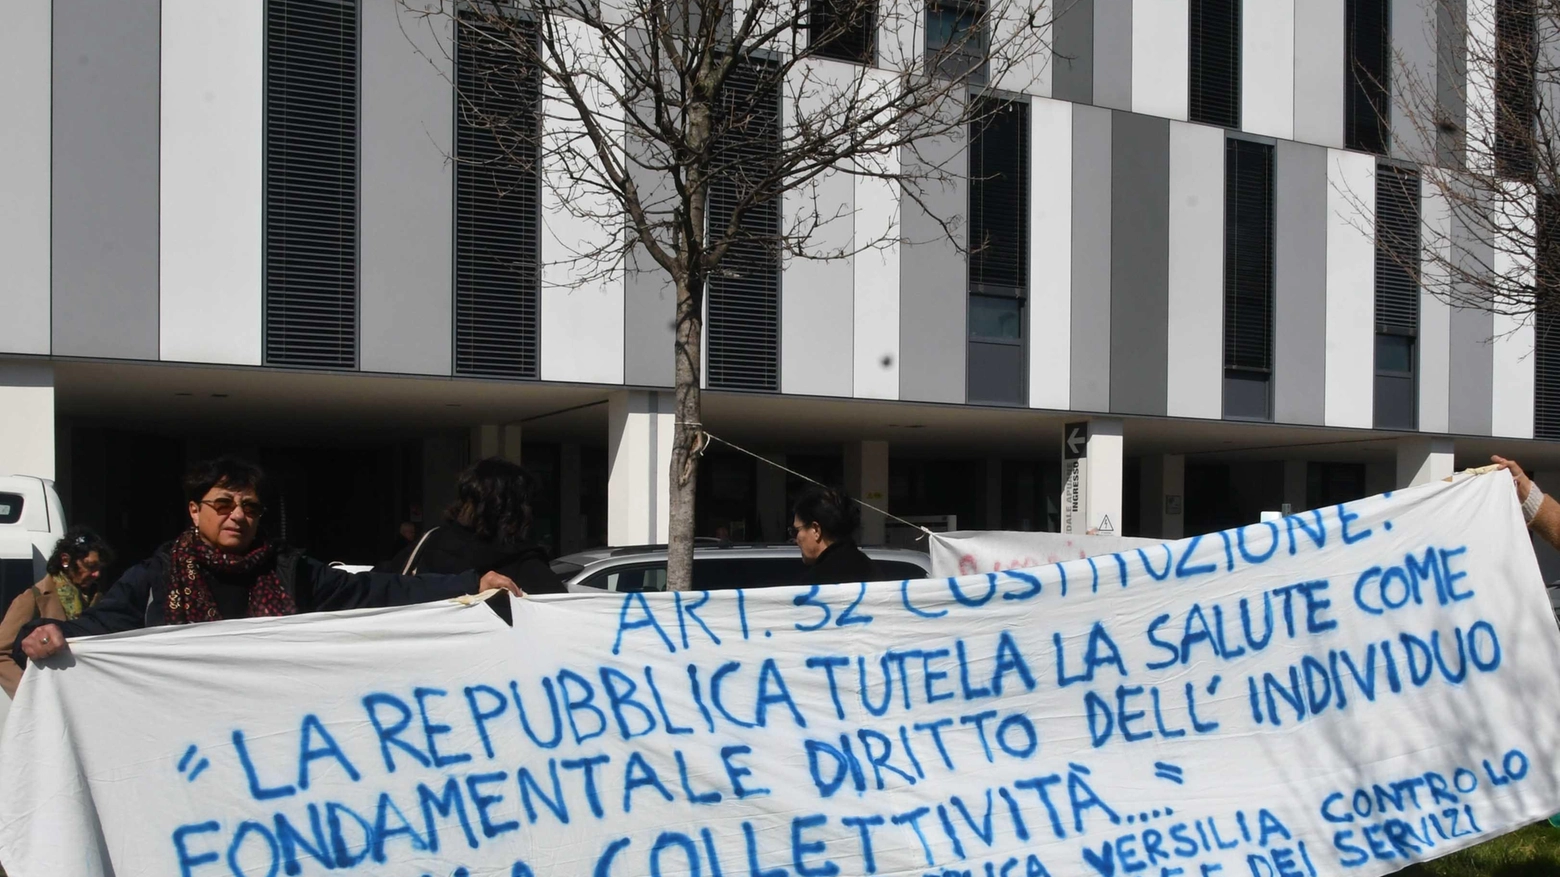 INGRESSO
ART. 32 COSTITUZIONE:
"LA REPUBBLICA TUTELA LA SALUTE COME
FONDAMENTALE DIRITTO DELL'INDIVIDUO
COLLETTIVITÀ...."
VERSILIA CONTRO LO
DEI SERVIZI